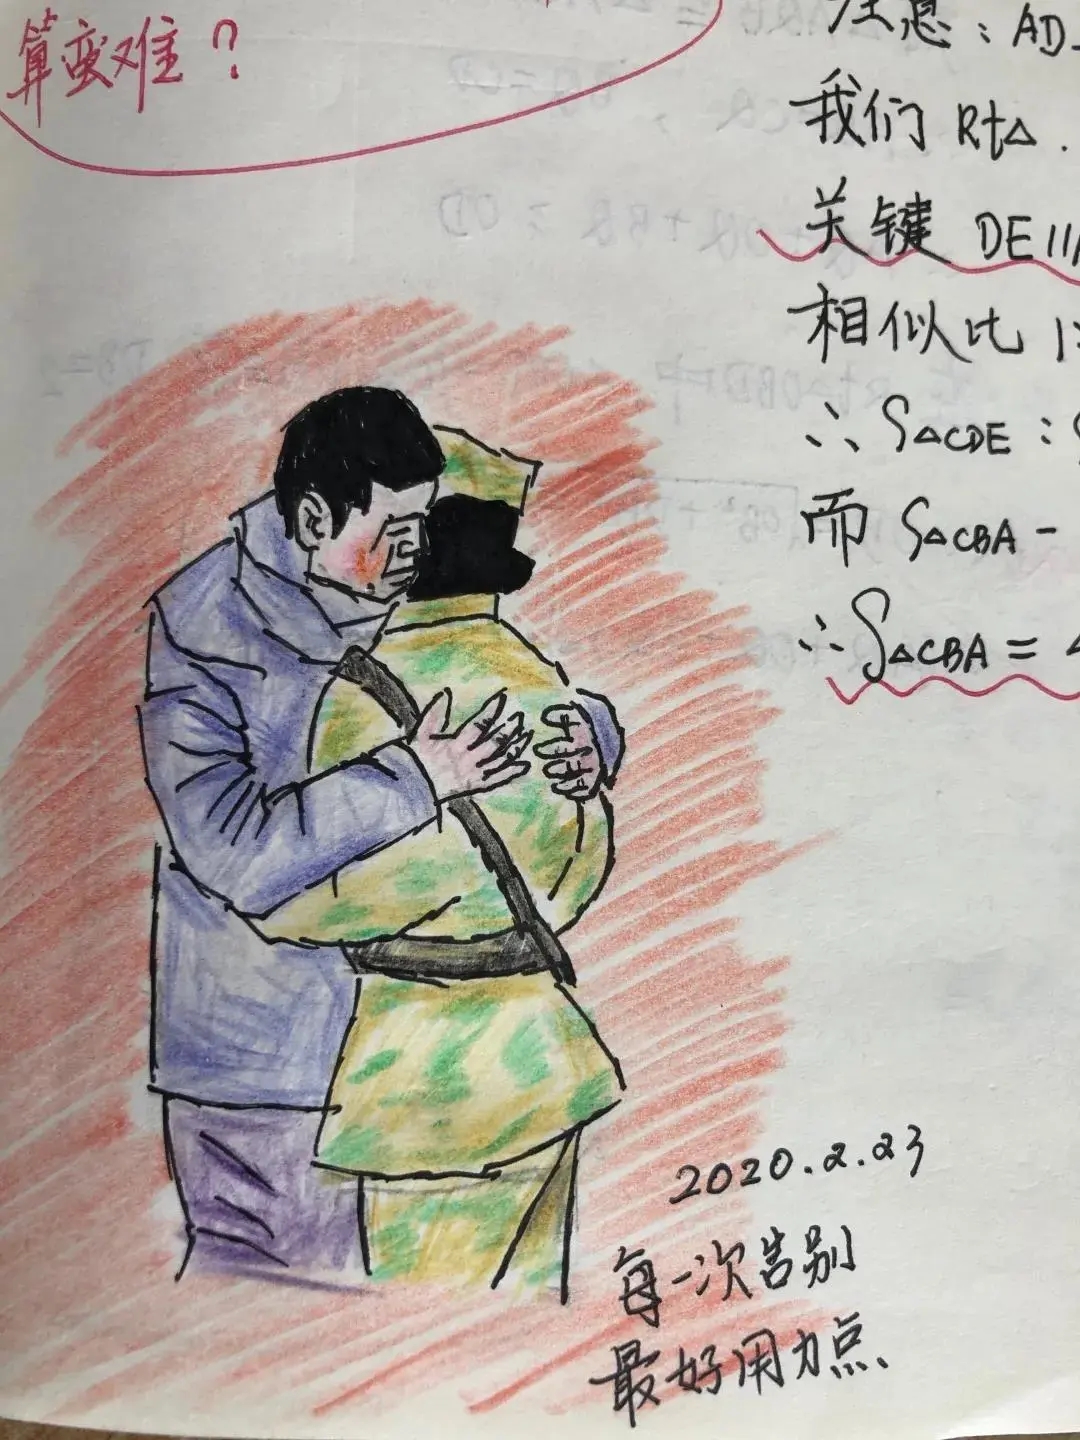 算变难？
注意：AD
我们 Rt△.
关键 DE∥
相似比 1:
∴ S△CDE：
而 S△CBA-
∴S△CBA =
2020.2.23
每一次告别
最好用力点